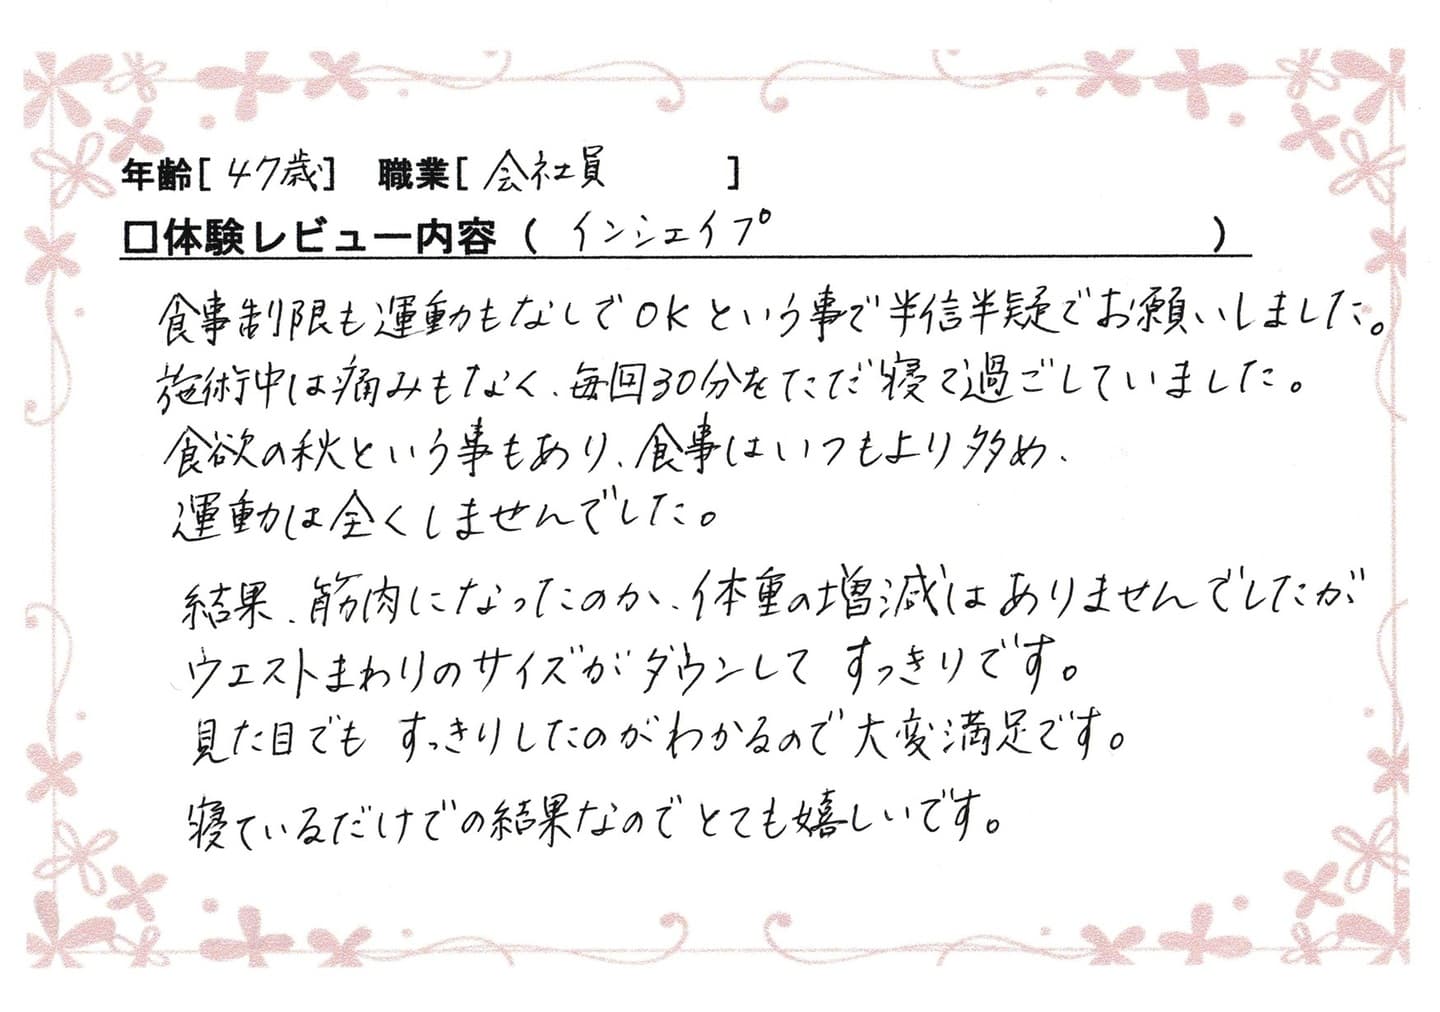 年齢[ 47歳] 職業[ 会社員 ]
□体験レビュー内容 ( インシェイプ )
食事制限も運動もなしでOKという事で半信半疑でお願いしました。
施術中は痛みもなく、毎回30分をただ寝て過ごしていました。
食欲の秋という事もあり、食事はいつもより多め、
運動は全くしませんでした。
結果、筋肉になったのか、体重の増減はありませんでしたが
ウエストまわりのサイズがダウンして すっきりです。
見た目でも すっきりしたのがわかるので大変満足です。
寝ているだけでの結果なのでとても嬉しいです。